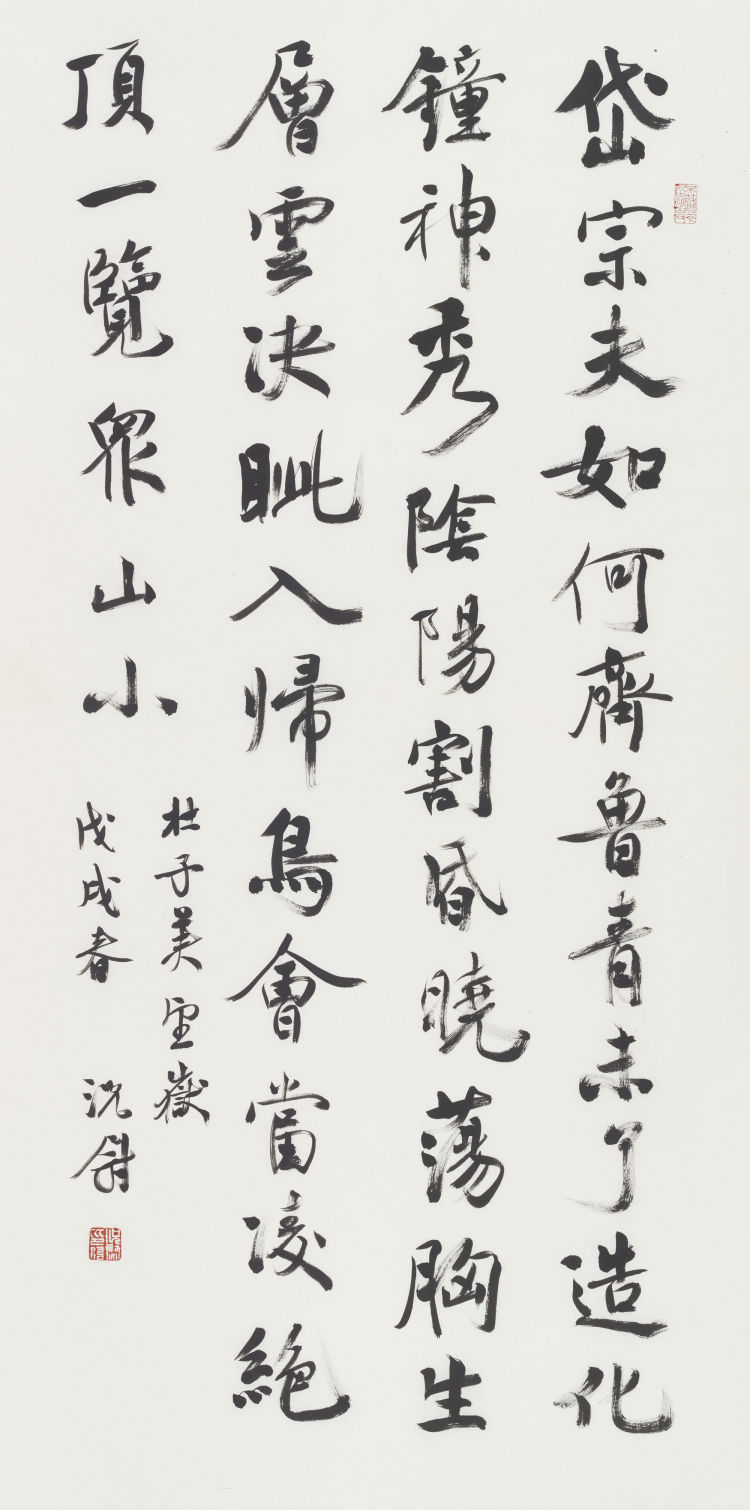 岱宗夫如何齊魯青未了造化
鐘神秀陰陽割昏曉蕩胸生
層雲决眦入帰鳥會當凌絕
頂一覽眾山小
杜子美望嶽
戊戌春 沈